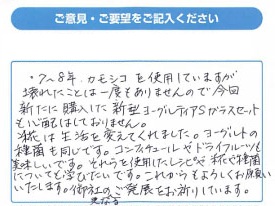 ご意見・ご要望をご記入ください
・7～8年、カモシコを使用していますが
壊れたことは一度もありませんので今回
新たに購入した新型ヨーグルティアSガラスセット
も心配はしておりません。
・糀は生活を変えてくれました。ヨーグルトの
種菌も同じです。コンフィチュールやドライフルーツも
美味しいです。それらを使用したレシピや糀や種菌
についても学びたいです。これからもよろしくお願い
いたします。御社の更なるご発展をお祈りしています。